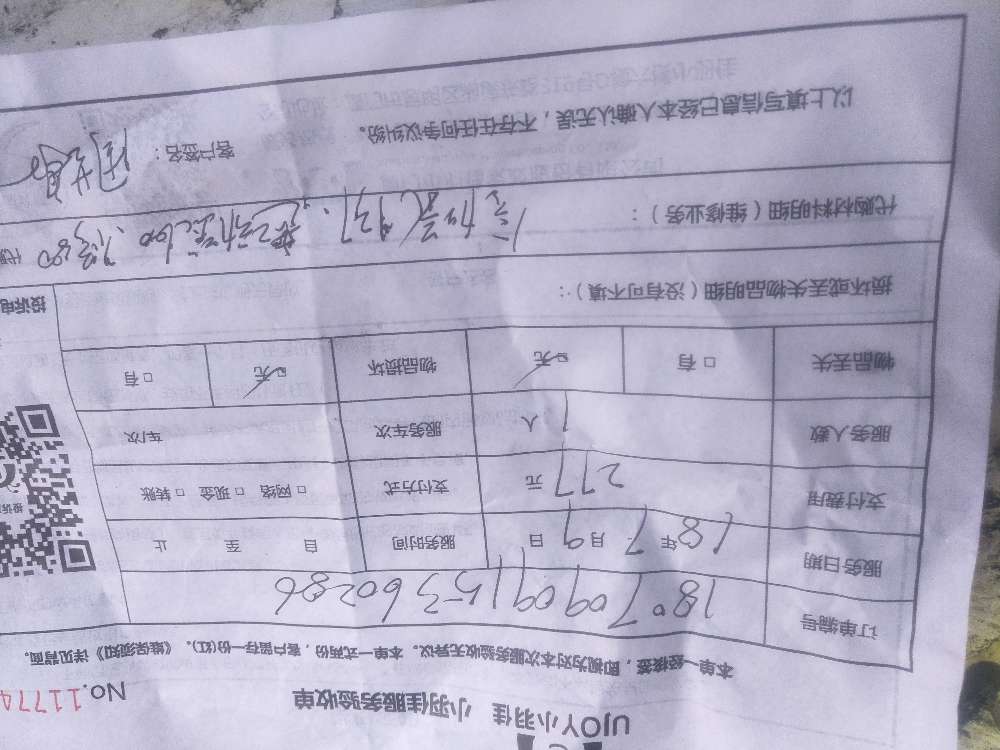 UJOY小羽佳 小羽佳服务验收单
No.11774
本单一经核签，即视为对本次服务验收无异议。本单一式两份，客户留存一份(红)。《维保须知》详见背面。
订单编号 180709091536 0286
服务日期 18年7月9日 服务时间 自 至 止
支付费用 277元 支付方式 □ 网络 □ 现金 □ 转账
服务人数 1人 服务车次 车/次
物品丢失 □ 有 □ 无 物品损坏 □ 无 □ 有
损坏或丢失物品明细（没有可不填）：
代购材料明细（维修业务）：
以上填写信息已经本人确认无误，不存在任何争议纠纷。 客户签名：
投诉电